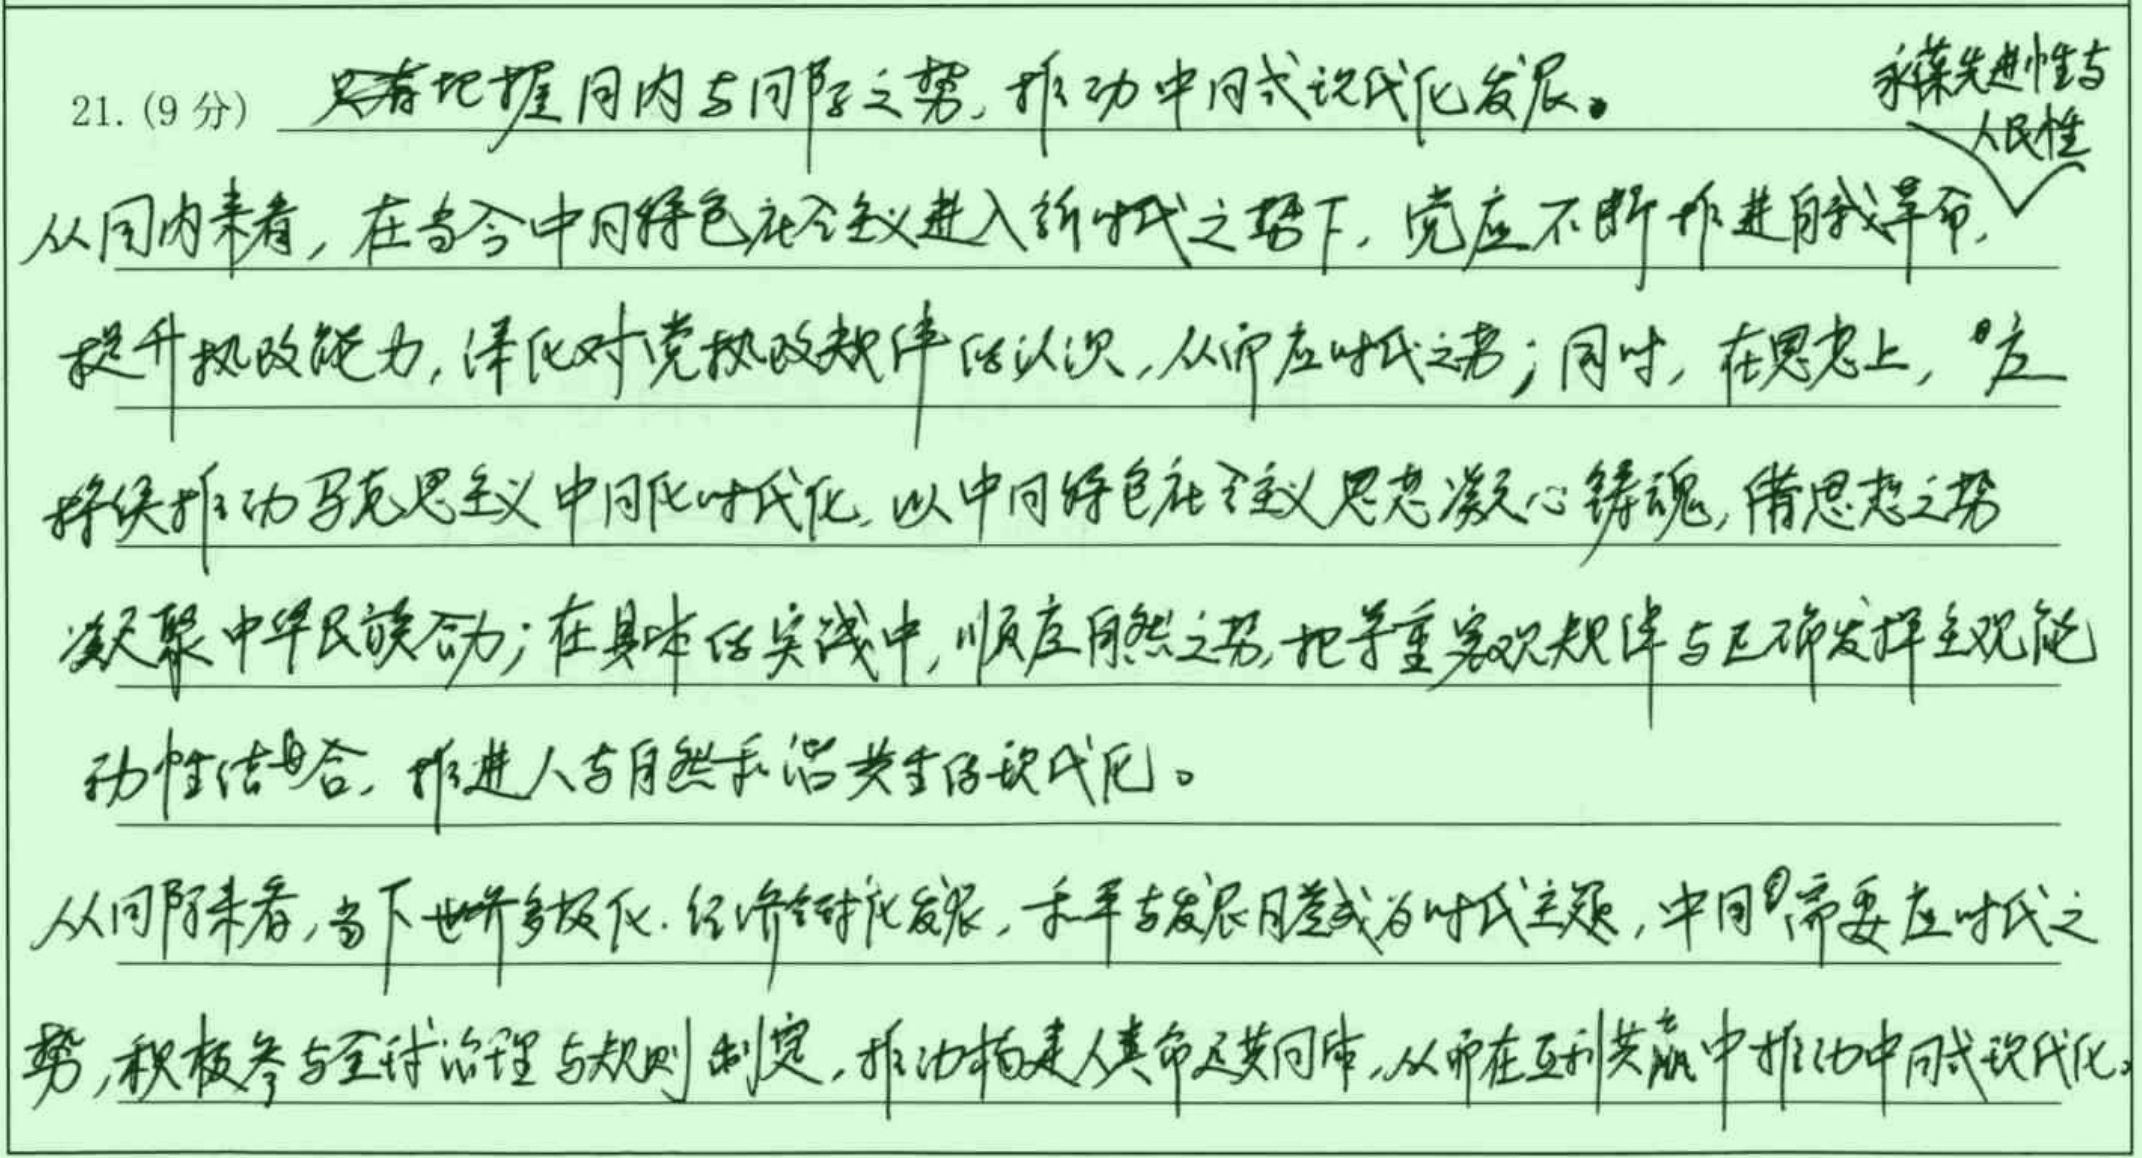 21. (9 分) 只有把握国内与国际之势，推动中国式现代化发展。
永葆先进性与
人民性
从国内来看，在当今中国特色社会主义进入新时代之势下，党应不断推进自我革命，
提升执政能力，深化对党执政规律的认识，从而应时代之势；同时，在思想上，应
持续推动马克思主义中国化时代化，以中国特色社会主义思想凝心铸魂，借思想之势
凝聚中华民族合力；在具体的实践中，顺应自然之势，把尊重客观规律与正确发挥主观能
动性结合，推进人与自然和谐共生的现代化。
从国际来看，当下世界多极化．经济全球化发展，和平与发展日益成为时代主题，中国需要应时代之
势，积极参与全球治理与规则制定，推动构建人类命运共同体，从而在互利共赢中推动中国式现代化。